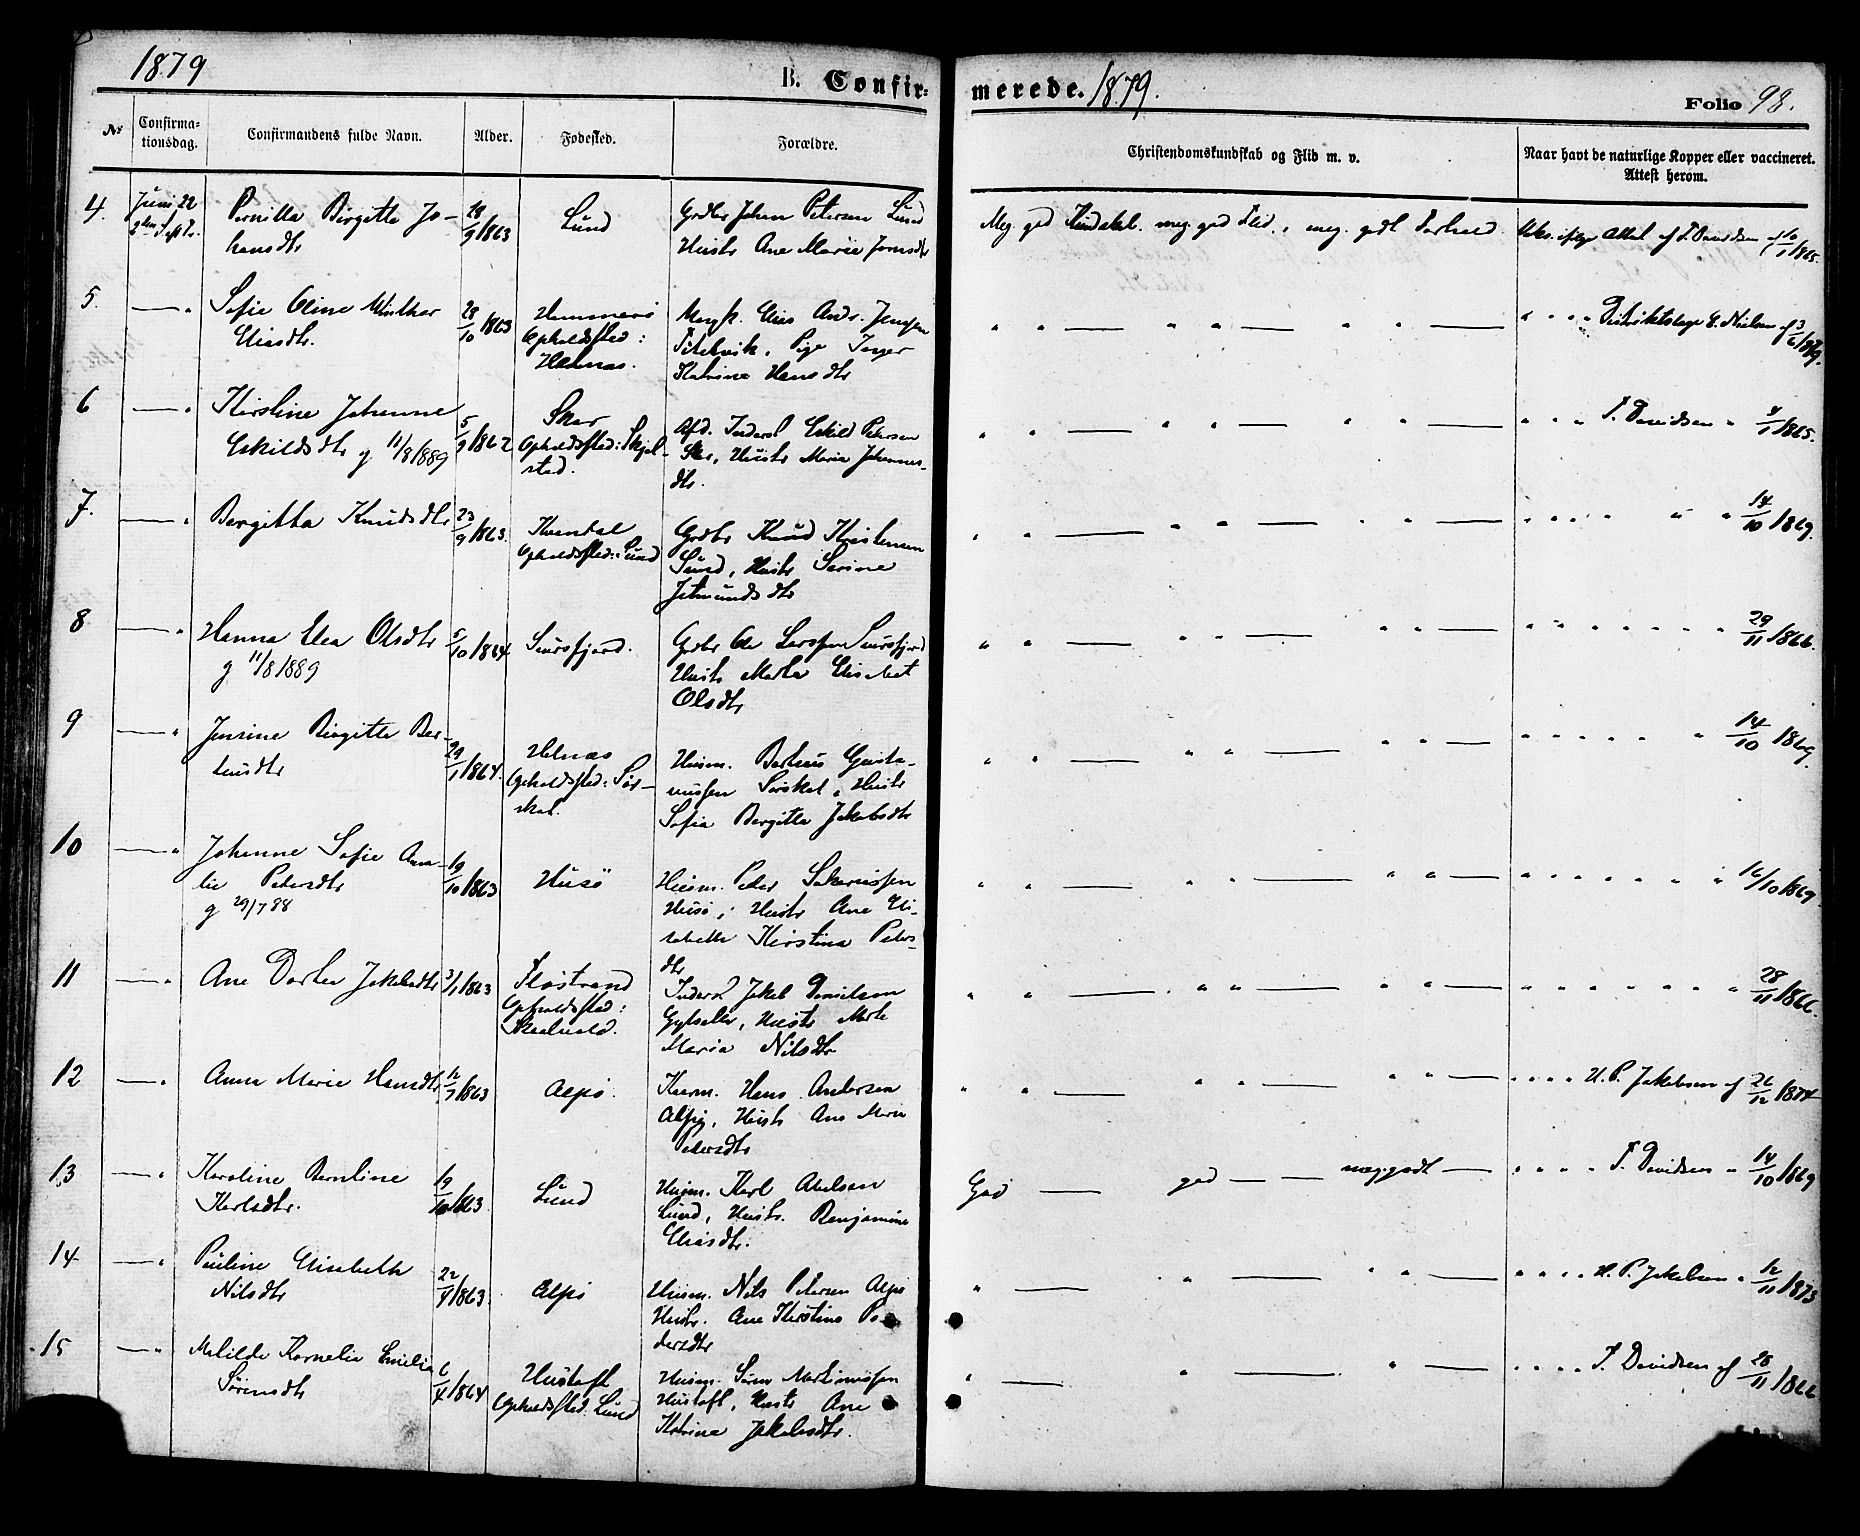 1879
B. Confir-
merede. 1879.
Folio 98.
№
Confirma-
tionsdag.
Confirmandens fulde Navn.
Alder.
Fødested.
Forældre.
Christendomskundskab og Flid m. v.
Naar havt de naturlige Kopper eller vaccineret.
Attest herom.
4.
Juni 22
Pernilla Birgitte Jo-
hansdtr
28/9 1863
Lund
Grdbr Johan Petersen Lund
Hustr Ane Marie Jonsdtr
Meg. god Kundskab. meg. god Flid., meg. godt Forhold.
Vaks. ifølge Attest af F. Davidsen af 10/1 1865.
5.
— "
Sofie Oline Winther
Eliasdtr.
28/10 1863
Opholdssted:
Helnas.
Ungk. Elias Andr. Jensen
Pige Inger
Katrina Hansdtr
" " — " " — " " —
" " " " Distriktslæge E. Nielsen af 3/6 1879.
6
— "
Kirstine Johanne
Eskildsdtr g 11/8 1889
5/9 1862
Skar
Opholdssted: Skjel-
stad.
Afd. Inderst Eskild Petersen
Skar, Hustr Maria Johannes-
dtr.
" " — " " — " " —
" " " F. Davidsen " 4/1 1865.
7.
— "
Bergitta Knudsdtr
23/9 1863.
Kvandal
Opholdssted: Lund
Grdbr Knud Kristensen
Lund, Hustr Serine
Jetmundsdtr
" " — " " — " " —
" " " " " " 14/10 1869.
8
— "
Hanna Elea Olsdtr
g 11/8 1889
5/10 1864
Sørsfjord.
Grdbr Ole Larssen Sørsfjord
Hustr Marta Elisabet
Olsdtr
" " — " " — " " —
" " " " " " " 29/11 1866.
9
— "
Jensine Birgitte Ber-
teusdtr
29/1 1864.
Helnæs
Opholdssted: Sør-
skat.
Husm. Berteus Gunta-
niussen Sørskat, Hustr
Sofia Bergitte Jakobsdtr
" " — " " — " " —
" " " " " " 14/10 1869.
10
— "
Johanne Sofie Ama-
lie Petersdtr
g 29/7 88
19/10 1863
Husö
Husm. Peder Sakariassen
Husö, Hustr Ane Eli-
sabeth Kirstina Peters-
dtr
" " — " " — " " —
" " " " " " " 16/10 1869
11
— "
Ane Dortea Jakobsdtr
3/1 1863
Flostrand
Opholdssted:
Inderst Jakob Danielsen
Hustr Marte
Maria Nilsdtr
" " — " " — " " —
" " " " " " " 28/11 1866.
12
— "
Anne Marie Hansdtr
12/7 1863
Alpö.
Husm. Hans Andersen
Alpö, Hustr Ane Marie
Pedersdtr
" " — " " — " " —
" " " " H. P. Jakobsen af 26/12 1874
13
— "
Karoline Berntine
Karlsdtr.
19/10 1863.
Lund
Husm. Karl Abelsen
Lund, Hustr. Benjamine
Eliasdtr.
God — god — — meg. godt —
" " " " F. Davidsen " 14/10 1869
14
— "
Pauline Elisabeth
Nilsdtr
22/4 1863.
Alpö
Husm. Nils Petersen Alpö
Hustr. Ane Kirstina Pe-
dersdtr
" — " — " " —
" " " " H. P. Jakobsen " 12/11 1873
15
— "
Matilde Kornelie Emelia
Sörensdtr
6/4 1864
Hustoft
Opholdssted Lund
Husm. Sören Martinussen
Hustoft, Hustr Ane
Katrina Jakobsdtr.
" — " — " —
" " " " F. Davidsen af 28/11 1866